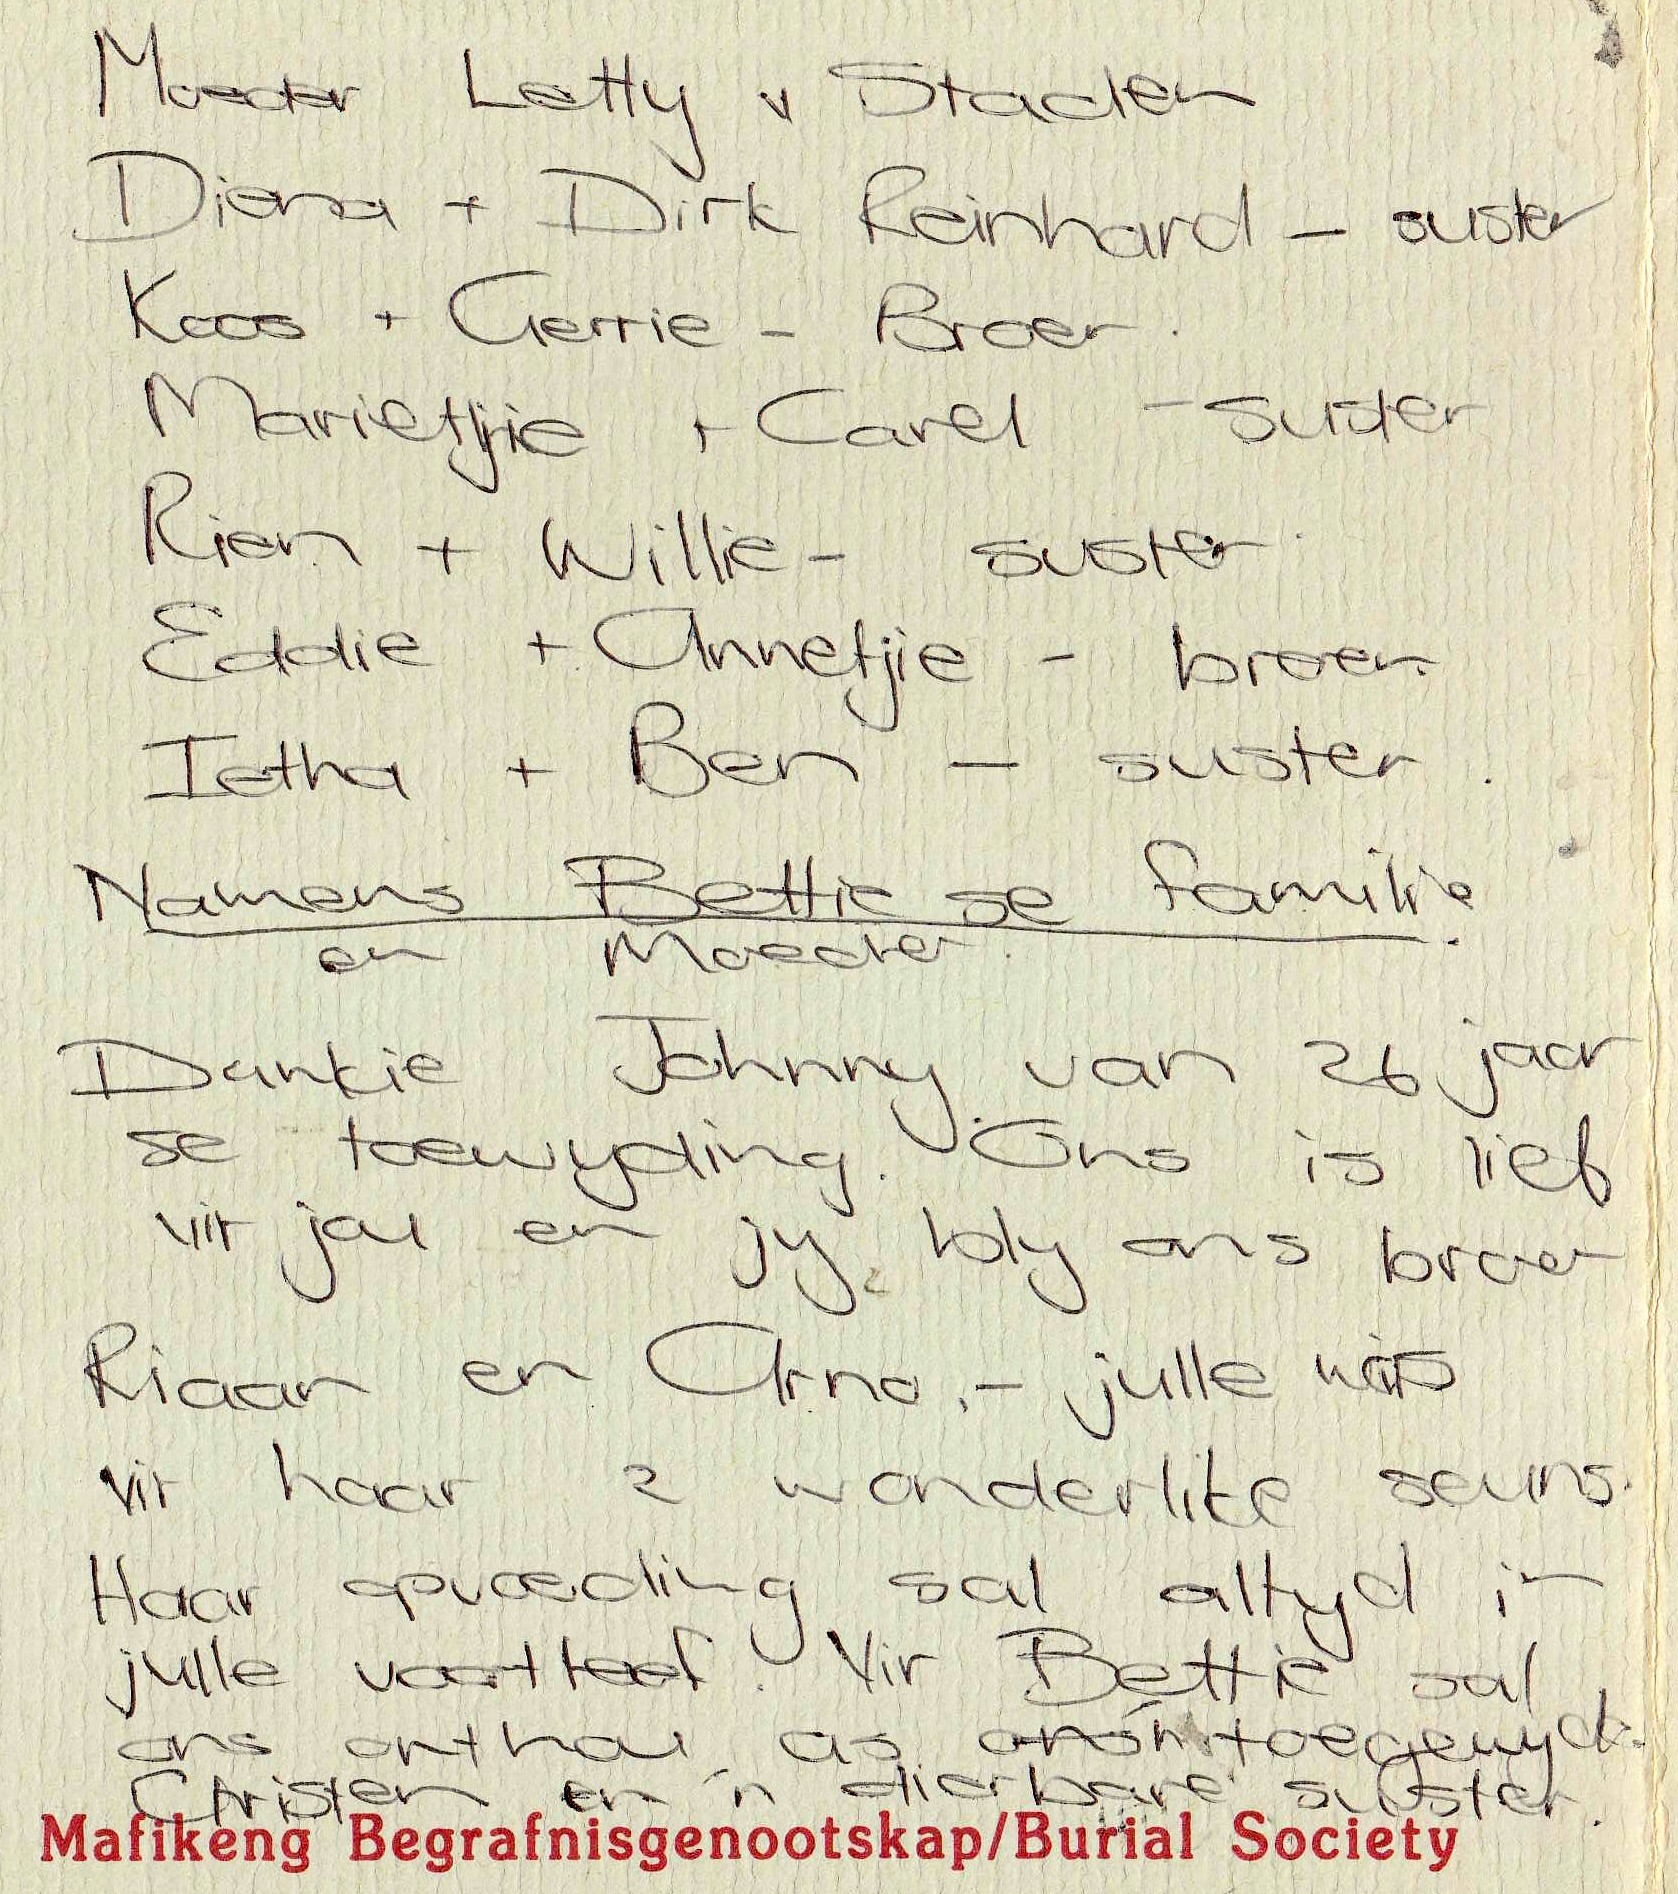 Moeder Letty v Staden
Diena + Dirk Reinhard - suster
Koos + Gerrie - Broer.
Marietjie + Carel - suster
Rien + Willie - suster
Eddie + Annetjie - broer.
Ietha + Ben - suster.
Namens Bettie se familie.
en Moeder.
Dankie Johnny van 26 jaar
se toewyding. Ons is lief
vir jou en jy bly ons broer
Riaan en Arno. - julle was
vir haar 2 wonderlike seuns.
Haar opvoeding sal altyd in
julle voortleef. Vir Bettie sal
ons onthou as 'n toegewyde
Christen en 'n dierbare suster.
Mafikeng Begrafnisgenootskap/Burial Society